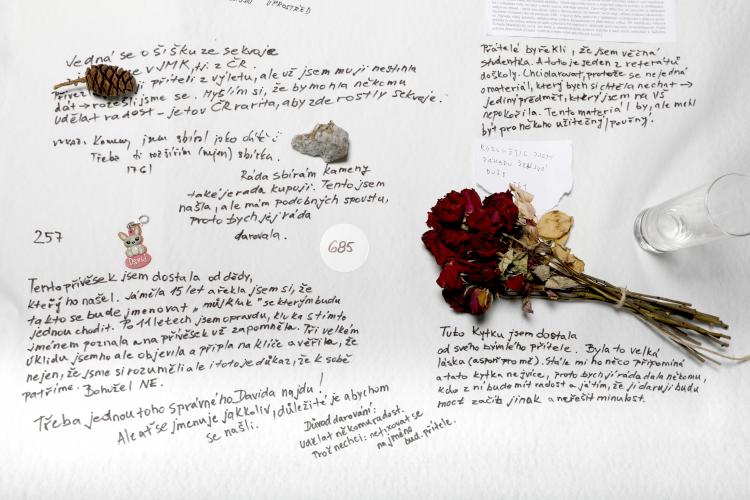 UPPROSTŘED
Jedná se o šišku ze sekvoje
v JMK, tj. z ČR.
příteli z výletu, ale už jsem mu ji nestihla
dát → rozešli jsme se. Myslím si, že by mohla někomu
udělat radost - je to v ČR rarita, aby zde rostly sekvoje.
vzkaz: Kameny jsem sbíral jako dítě :)
Třeba ti rozšířím (nejen) sbírku.
Ráda sbírám kameny
také je ráda kupuji. Tento jsem
našla, ale mám podobných spoustu,
proto bych jej ráda
darovala.
257
David
685
Tento přívěsek jsem dostala od dědy,
který ho našel. Já měla 15 let a řekla jsem si, že
takto se bude jmenovat „můj kluk" se kterým budu
jednou chodit. Po 11 letech jsem opravdu kluka s tímto
jménem poznala a na přívěsek už zapomněla. Při velkém
úklidu jsem ho ale objevila a připla na klíče a věřila, že
nejen, že jsme si rozuměli ale i toto je důkaz, že k sobě
patříme. Bohužel NE.
Třeba jednou toho správného Davida najdu!
Ale ať se jmenuje jakkoliv, důležité je abychom
se našli.
Důvod darování:
Udělat někomu radost.
Proč nechci: nefixovat se
na jméno
bud. přítele.
Přátelé by řekli, že jsem věčná
studentka. A toto je jeden z referátů
do školy. Chci darovat, protože se nejedná
o materiál, který bych si chtěla nechat →
jediný předmět, který jsem na VŠ
nepokořila. Tento materiál by, ale mohl
být pro někoho užitečný/poučný.
Tuto kytku jsem dostala
od svého bývalého přítele. Byla to velká
láska (aspoň pro mě). Stále mi ho něco připomíná
a tato kytka nejvíce, proto bych ji ráda dala někomu,
kdo z ní bude mít radost a já tím, že ji daruji budu
moct začít jinak a neřešit minulost.